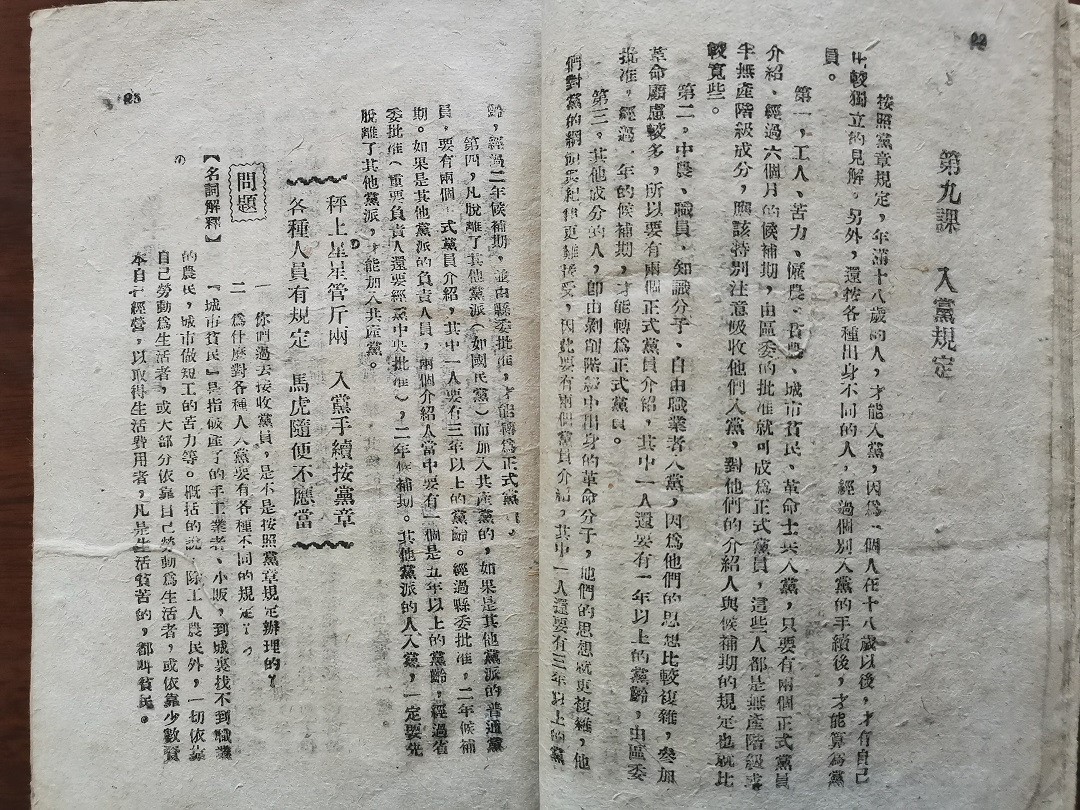 第九課　入黨規定
按照黨章規定，年滿十八歲的人，才能入黨，因爲一個人在十八歲以後，才有自己
比較獨立的見解。另外，還按各種出身不同的人，經過個別入黨的手續後，才能算爲黨
員。
第一，工人、苦力、僱農、貧農、城市貧民、革命士兵入黨，只要有兩個正式黨員
介紹，經過六個月的候補期，由區委的批准就可成爲正式黨員，這些人都是無產階級或
半無產階級成分，應該特別注意吸收他們入黨，對他們的介紹人與候補期的規定也就比
較寬些。
第二，中農、職員、知識分子、自由職業者入黨，因爲他們的思想比較複雜，參加
革命顧慮較多，所以要有兩個正式黨員介紹，其中一人還要有一年以上的黨齡，由區委
批准，經過一年的候補期，才能轉爲正式黨員。
第三，其他成分的人，卽由剝削階級中出身的革命分子，他們的思想就更複雜，他
們對黨的綱領與紀律更難接受，因此要有兩個黨員介紹，其中一人還要有三年以上的黨
齡，經過二年候補期，並由縣委批准，才能轉爲正式黨員。
第四，凡脫離了其他黨派（如國民黨）而加入共產黨的，如果是其他黨派的普通黨
員，要有兩個正式黨員介紹，其中一人要有三年以上的黨齡。經過縣委批准，二年候補
期。如果是其他黨派的負責人員，兩個介紹人當中要有一個是五年以上的黨齡，經過省
委批准（重要負責人還要經黨中央批准），二年候補期。其他黨派的人入黨，一定要先
脫離了其他黨派，才能加入共產黨。
秤上星星管斤兩　入黨手續按黨章
各種人員有規定　馬虎隨便不應當
問題
一　你們過去接收黨員，是不是按照黨章規定辦理的？
二　爲什麼對各種人入黨要有各種不同的規定？
【名詞解釋】　『城市貧民』是指破產了的手工業者、小販，到城裏找不到職業
的農民，城市做短工的苦力等。概括的說，除工人農民外，一切依靠
自己勞動爲生活者，或大部分依靠自己勞動爲生活者，或依靠少數資
本自己經營，以取得生活費用者，凡是生活貧苦的，都叫貧民。